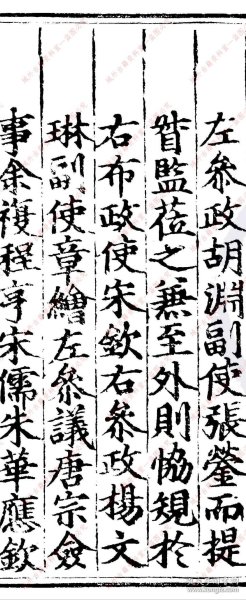 左叅政胡淵副使張鎣而提
督監莅之兼至外則恊規於
右布政使宋欽右叅政楊文
琳副使章繪左叅議唐宗僉
事余複程亨宋儒朱華應欽